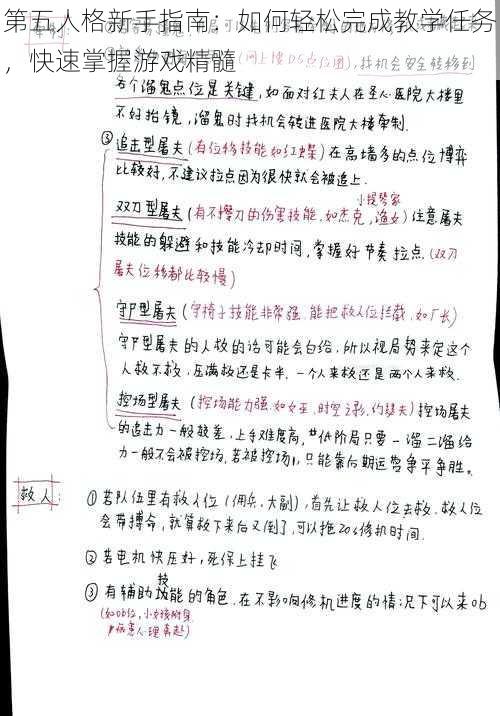 第五人格新手指南：如何轻松完成教学任务
，快速掌握游戏精髓
牵制：
找机会安全转移到
各个溜鬼点位是关键，如面对红夫人在圣心医院大楼里
不好抬镜，溜鬼时找机会转进医院大楼牵制.
③追击型屠夫（有位移技能如红蝶）在高墙多的点位博弈
比较好，不建议拉点因为很快就会被追上.
小提琴家
双刀型屠夫（有不擦刀的伤害技能，如杰克，渔女）注意屠夫
技能的躲避和技能冷却时间，掌握好节奏拉点.（双刀
屠夫位移都比较慢）
守尸型屠夫（守椅子技能非常强，能把救人位拦截，如厂长）
守尸型屠夫的人救的话可能会白给，所以视局势来定这个
人救不救，压满救还是卡半，一个人来救还是两个人来救.
控场型屠夫（控场能力强如女王，时空之影，约瑟夫）控场屠夫
的追击力一般较差，上手难度高，低阶局只要一溜二溜给
力一般不会被控场，若被控场，只能靠后期运营争平争胜。
救人：
①若队伍里有救人位（佣兵，大副），首先让救人位去救，救人位
会带搏命，就算救下来后又倒了，可以拖20s修机时间.
②若电机快压好，死保上挂飞
技
③有辅助功能的角色，在不影响修机进度的情况下可以来ob
（如ob位，小女孩附身
病患人理奔赴）